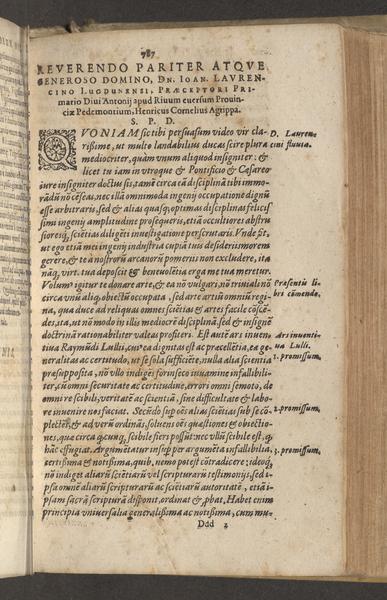 787
REVERENDO PARITER ATQVE
GENEROSO DOMINO, DN. IOAN. LAVREN-
CINO LUGDUNENSI, PRÆCEPTORI PRI-
mario Diui Antonij apud Riuum euersum Prouin-
ciæ Pedemontium, Henricus Cornelius Agrippa.
S. P. D.
QVONIAM sic tibi persuasum video vir cla-
rißime, ut multo landabilius ducas scire plura
mediocriter, quàm vnum aliquod insigniter: &
licet tu iam in vtroque & Pontificio & Cæsareo
iure insigniter doctus sis, tamẽ circa eã disciplinã tibi immo-
rãdũ nõ cẽseas, nec illã omnimoda ingenij occupatione dignũ
esse arbitraris, sed & alias quasq; optimas disciplinas felicis-
simi ingenij amplitudine prosequeris, etiã occultiores abstru
sioresq; sciẽtias diligẽti inuestigatione perscrutaris. Vnde fit,
ut ego etiã mei ingenij industria cupiã tuis desiderijs morem
gerere, & te à nostrorũ arcanorũ pomerijs non excludere, ita
nãq; virt. tua deposcit & beneuolẽtia erga me tua meretur.
Volumꝰ igitur te donare arte, & ea nõ vulgari, nõ triuiali nõ
circa vnũ aliq; obiectũ occupata, sed arte artiũ omniũ regi-
na, qua duce ad reliquas omnes sciẽtias & artes facile cõscẽ-
des, ita, ut nõ modo in illis mediocrẽ disciplinã, sed & insignẽ
doctrinã rationabiliter valeas profiteri. Est autẽ ars inuen-
tiua Raymũdi Lulli, cuiꝰ ea dignitas est ac præcellẽtia, ea ge-
neralitas ac certitudo, ut se sola sufficiẽte, nulla alia scientia
præsupposita, nõ vllo indigẽs forinseco inuamine infallibili-
ter, cũ omni securitate ac certitudine, errori omni semoto, de
omni re scibili, veritatẽ ac scientiã, sine difficultate & labo-
re inuenire nos faciat. Secũdò sup oẽs alias sciẽtias sub se cõ-
plectĩt, & ad verũ ordinãs, soluens oẽs quæstiones & obiectio-
nes, quæ circa q;cunq; scibile fieri possũt: nec vllũ scibile est, q;
hãc effugiat. Argumẽtatur insup per argumẽta infallibilia,
certißima & notißima, quib. nemo potest cõtradicere: ideoq;
nõ indiget aliarũ sciẽtiarũ vel scripturarũ testimonijs, sed i-
psa omnẽ aliarũ scripturarũ ac sciẽtiarũ autoritatẽ, etiã i-
psam sacrã scripturã disponit, ordinat & ꝓbat. Habet enim
principia vniuersalia generalißima ac notißima, cum mu-
Ddd 2
D. Lauren-
cini studia.
Præsentis li-
bri cõmenda.
Ars inuenti-
ua Lulli.
1. promissum.
2. promissum.
3. promissum.